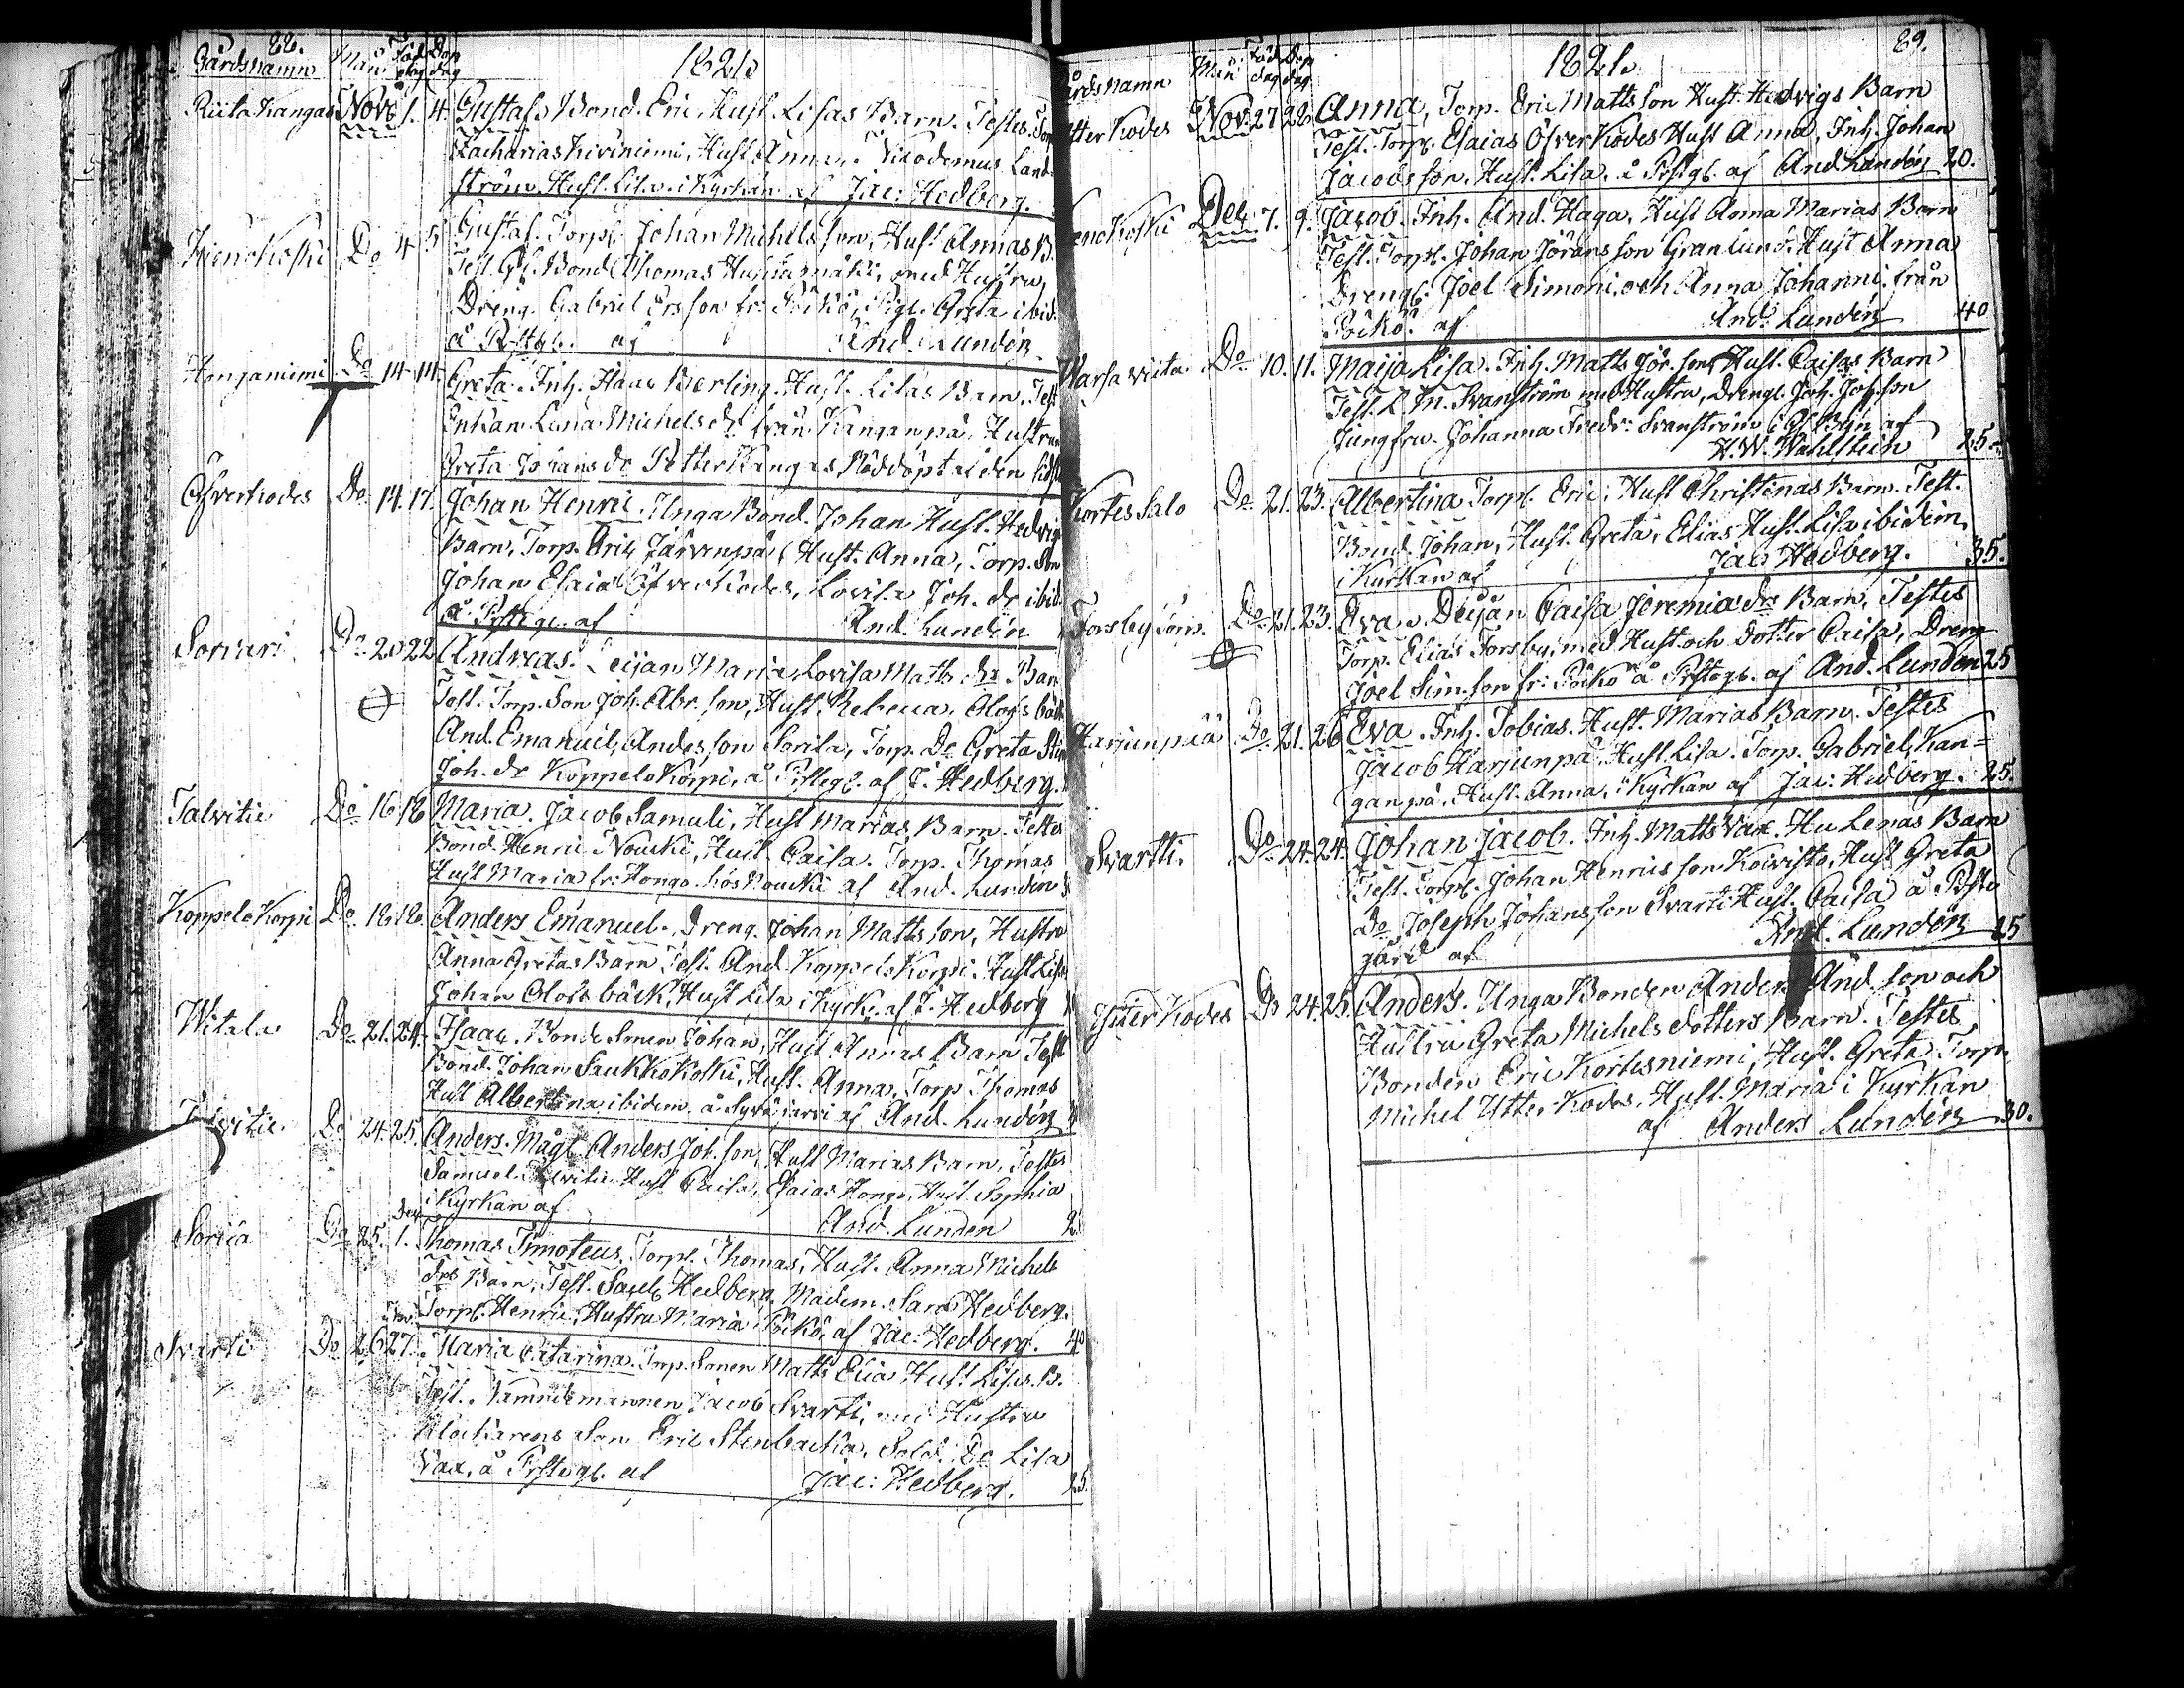 88.
Gårdsnamn Mån Föd dag Dop dag 1821.
Riitakangas Nov. 1. 4. Gustaf. Bond. Eric, Hust. Lisas Barn. Testes. Torp
Zacharias Kiviniemi, Hust. Anna, Nicodemus Land-
ström Hust. Lisa i Kyrkan af Jac: Hedberg.
Do 4 5 Gustaf. Torpr. Johan Michelsson, Hust. Annas B.
Test. Bond Thomas med Hustru,
Dreng. Gabriel Ersson fr: Pöikö, Pig. Greta ibid.
å Prstgl. af And. Lundén
Honganiemi Do 14. 14. Greta. Inh. Isaac Berling. Hust. Lisas Barn. Test
Enkan Lena Michels dr från Kanganpä, Hustrun
Greta Johans dr Petterkangas Nöddöpt af den sidst
Öfverkodes Do 14. 17. Johan Henric. Unga Bond. Johan Hust. Hedvigs
Barn, Torp. Eric Järvenpä, Hust. Anna, Torp. Son
Johan Esaias Öfverkodes, Lovisa Joh. dr ibid.
å Prstgl. af And. Lundén
Sorvari Do 20 22 Andreas. Deijan Maria Lovisa Matts drs Barn
Test. Torp. Son Joh. Abr. son, Hust. Rebecca, Olofsbäck
And. Emanuel, Andersson Sorila, Torp. Dr Greta Stin
Joh. dr Koppelokorpi, å Prstegl. af J. Hedberg.
Talvitie Do 16 18 Maria. Jacob Samuli, Hust Marias Barn. Testes
Bond. Henric Noucki, Hust. Caisa. Torp. Thomas
Hust Maria fr: Hongo hos Noucki af And. Lundén
Koppelo Korpi Do 18. 18. Anders Emanuel. Dreng. Johan Mattsson, Hustru
Anna Gretas Barn Test. And. Koppelokorpi Hust Lisa
Johan Olofsbäck, Hust Lisa i Kyrk. af J. Hedberg
Witala Do 21. 24. Isaac. Bonde Sonen Johan, Hust Annas Barn Test
Bond. Johan Saukkokoski, Hust. Anna, Torp Thomas
Hust Albertina ibidem å af And. Lundén
Talvitie Do 24. 25. Anders. Mågl Anders Joh. son, Hust Marias Barn, Testes
Samuel Talvitie Hust Caisa, Esaias Hongo, Hust. Sophia
i Kyrkan af And. Lunden 2
Sorila Do 25. Dec 1. Thomas Timoteus. Torpl. Thomas, Hust. Anna Michels
drs Barn, Test. Sacell Hedberg, Madem. Sara Hedberg.
Torpl. Henric, Hustru Maria Pöikö, af Jac: Hedberg. 40
Svarti Do 26 Nov. 27. Maria Catarina. Torp. Sonen Matts Elias Hust Lisas B.
Test. Nämndemannen Jacob Svarti, med Hustru
Klockarens Son Eric Stenbacka, Sold. Dr Lisa
Vax, å Prstegl. af Jac: Hedberg. 25.
89.
Gårdsnamn Mån Föd dag Dop dag 1821.
Ytter Kodes Nov. 27 28 Anna, Torp. Eric Mattsson Hust. Hedvigs Barn
Test. Torpl. Esaias Öfverkodes Hust Anna, Inh. Johan
Jacobsson. Hust. Lisa å Prstgl. af And. Lundén 20.
Dec. 7. 9. Jacob. Inh. And. Haga, Hust Anna Marias Barn
Test. Torpl. Johan Jöransson Granlund, Hust Anna
Drengl. Joel Simoni och Anna Johanni från
Pöikö. af And: Lundén 40
Warsawiita Do 10. 11. Maija Lisa. Inh. Matts Jör. son, Hust. Caisas Barn
Test. L. M. Svanström med Hustru, Drengl. Joh. Joh. son
Jungfru. Johanna Fredr: Svanström i af
H. W. Wahlstein 25
Kortes Salo Do 21. 23. Albertina Torpl. Eric, Hust Christinas Barn. Test.
Bond. Johan, Hust. Greta, Elias Hust. Lisa ibidem
i Kyrkan af Jac: Hedberg. 35.
Forsby Torp. Do 21. 23. Eva. Deijan Caisa Jeremiæ drs Barn, Testes
Torp. Elias Forsby, med Hust och Dotter Caisa, Dreng
Joel Simsson fr: Pöikö å Prstegl. af And. Lunden 25
Harjunpää Do 21. 26 Eva. Inh. Tobias. Hust. Marias Barn. Testes
Jacob Harjunpä, Hust Lisa. Torp. Gabriel Kan=
ganpä, Hust. Anna, i Kyrkan af Jac: Hedberg. 25.
Svartti. Do 24. 24. Johan Jacob. Inh. Matts Vax. Hu Lenas Barn
Test. Torpl. Johan Henricsson Koivisto, Hust Greta
Do Joseph Johansson Svarti Hust. Caisa å Preste
gård af And. Lundén 25
Ytter Kodes Do 24. 25. Anders. Unga Bonden Anders And. son och
Hustru Greta Michels dotters Barn. Testes,
Bonden Eric Kortesniemi, Hust. Greta Torp.
Michel Ytter Kodes, Hust. Maria i Kyrkan
af Anders Lundén 30.